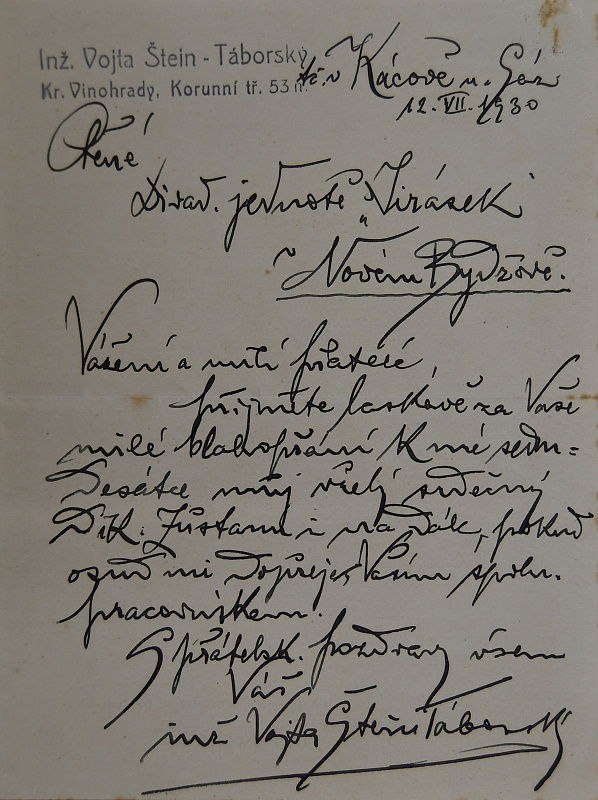 Inž. Vojta Štein - Táborský
Kr. Vinohrady, Korunní tř. 53 n.
t. č. v Kácově n. Sáz
12. VII. 1930
Ctěné
Divad. jednotě „Jirásek"
v Novém Bydžově.
Vážení a milí přátelé,
přijměte laskavě za Vaše
milé blahopřání k mé sedm=
desátce můj vřelý srdečný
dík. Zůstanu i na dál, pokud
osud mi dopřeje, Vaším spolu-
pracovníkem.
S přátelsk. pozdravy všem
Váš
inž Vojta Štein Táborský